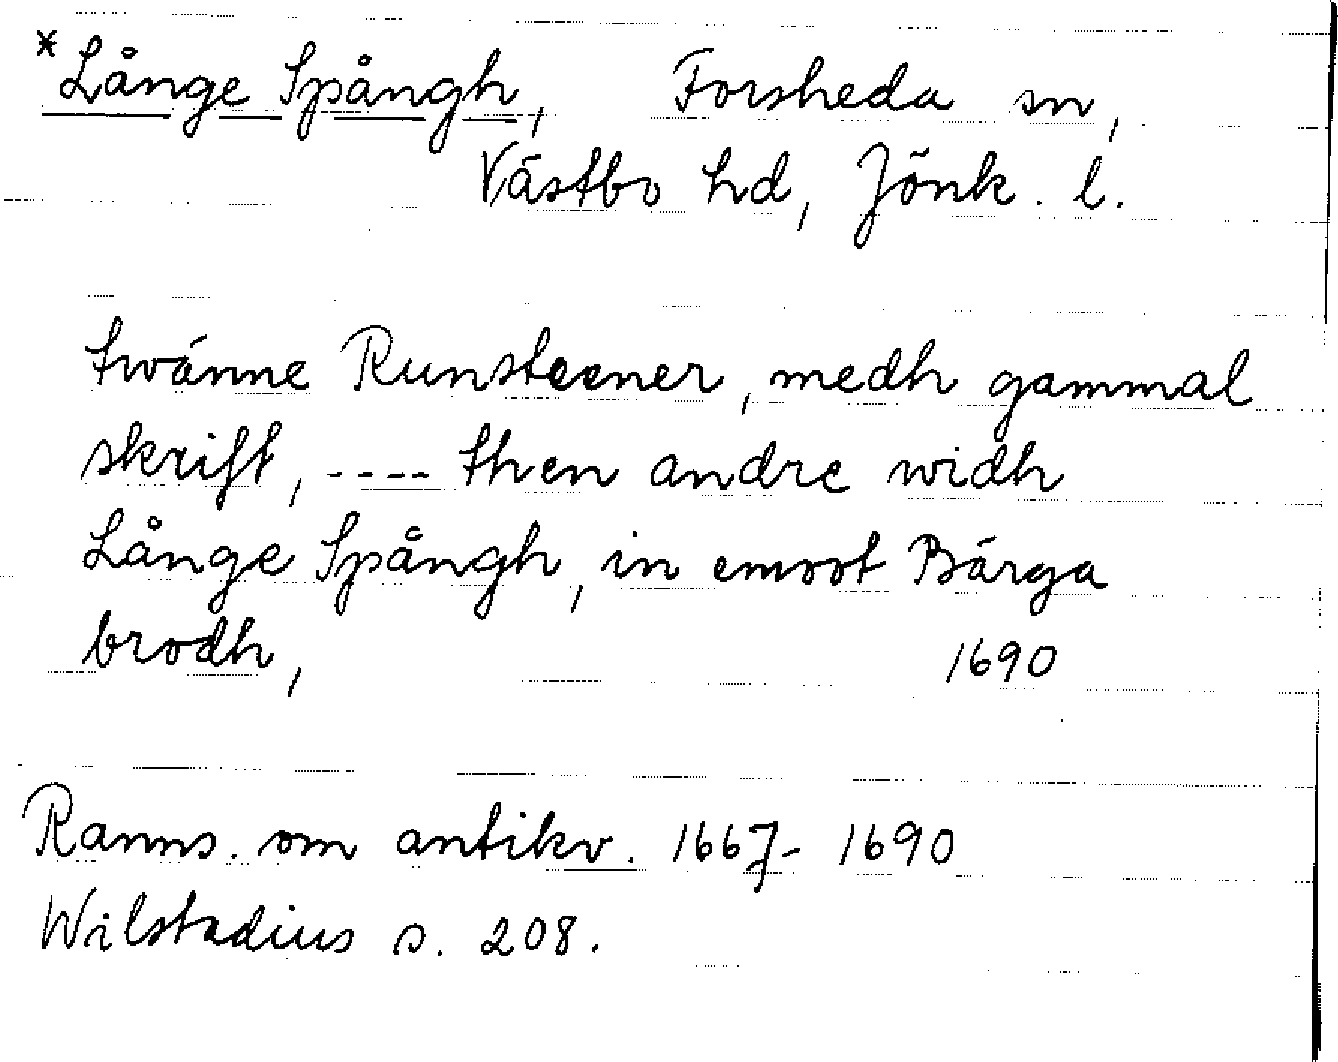 *Långe Spångh, Forsheda sn,
Västbo hd, Jönk. l.
twänne Runsteener, medh gammal
skrift, ---- then andre widh
Långe Spångh, in emoot Bärga
brodh, 1690
Ranns. om antikv. 1667-1690
Wilstadius s. 208.